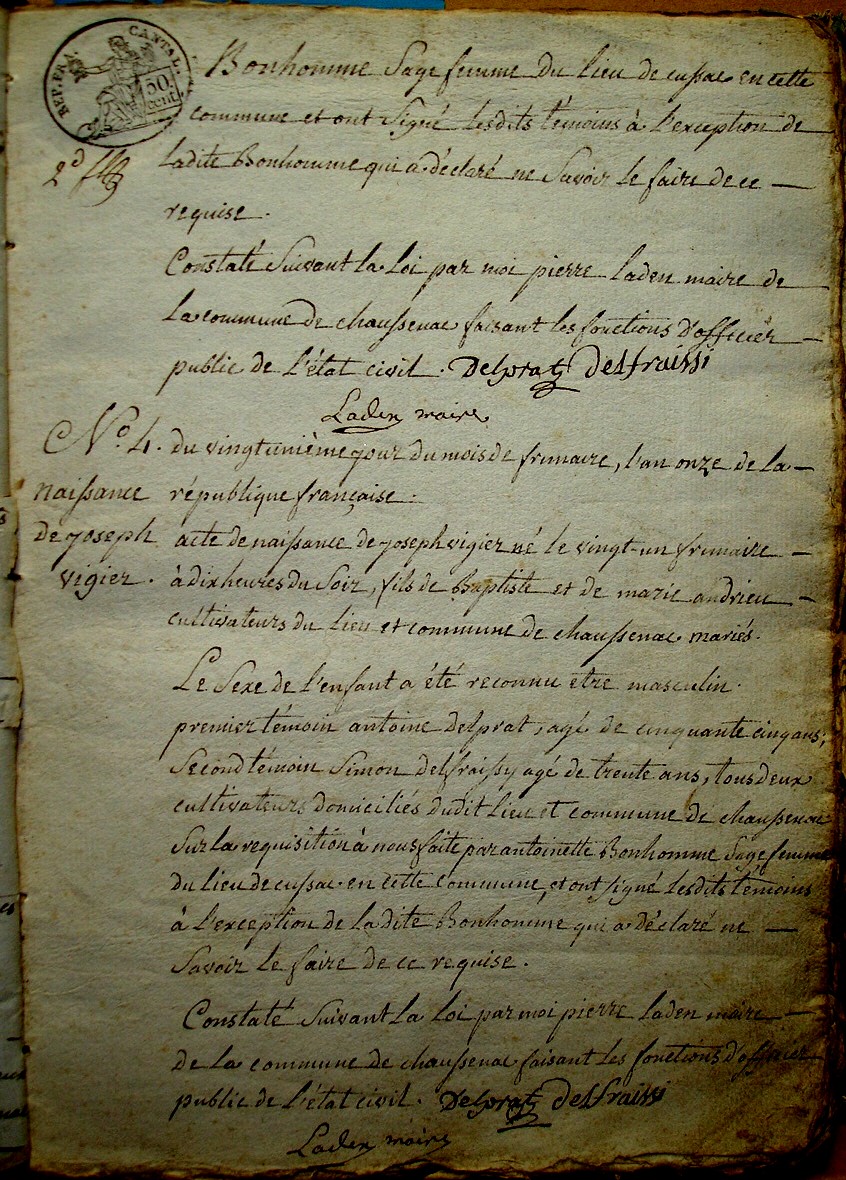 REP. FRA. CANTAL.
50 cent.
Bonhomme Sage femme du lieu de cussac en cette
commune et ont Signé lesdits témoins à l'exception de
2d
ladite Bonhomme qui a déclaré ne Savoir le faire de ce —
requise.
Constaté Suivant la Loi par moi pierre laden maire de
la commune de chaussenac faisant les fonctions D'officier —
public de l'état civil. Delprat delfraissi
Laden maire
No. 4. du vingtunième jour du mois de frimaire, l'an onze de la —
naissance république française.
de joseph acte de naissance de joseph vigier né le vingt-un frimaire —
vigier. à dix heures du Soir, fils de Baptiste et de marie andrieu —
cultivateurs du lieu et commune de chaussenac mariés.
Le Sexe de l'enfant a été reconnu etre masculin.
premier témoin antoine delprat, agé de cinquante cinq ans,
Second témoin Simon delfraissy agé de trente ans, tous deux
cultivateurs domiciliés dudit lieu et commune de chaussenac
Sur la requisition à nous faite par antoinette Bonhomme Sage femme
du lieu de cussac en cette commune, et ont signé lesdits témoins
à l'exception de la dite Bonhomme qui a déclaré ne —
Savoir le faire de ce requise.
Constaté Suivant la Loi par moi pierre laden maire —
de la commune de chaussenac faisant les fonctions d'officier
public de l'état civil. Delprat delfraissi
Laden maire